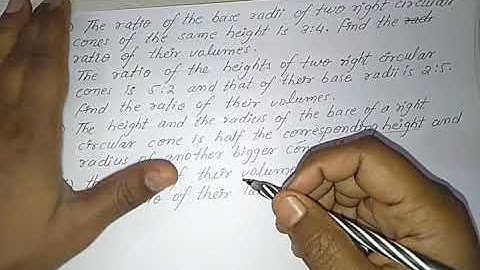 The ratio of the base radii of two right circular
cones of the same height is 3:4. Find the
ratio of their volumes.
The ratio of the heights of two right circular
cones is 5:2 and that of their base radii is 2:5.
Find the ratio of their volumes.
The height and the radius of the base of a right
circular cone is half the corresponding height and
radius of another bigger
the of their volume
of their